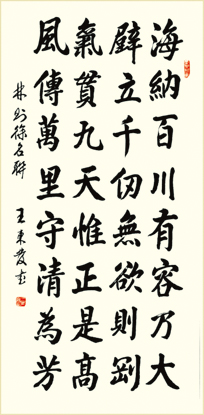 海納百川有容乃大
壁立千仞無欲則剛
氣貫九天惟正是高
風傳萬里守清為芳
林則徐名聯
王東